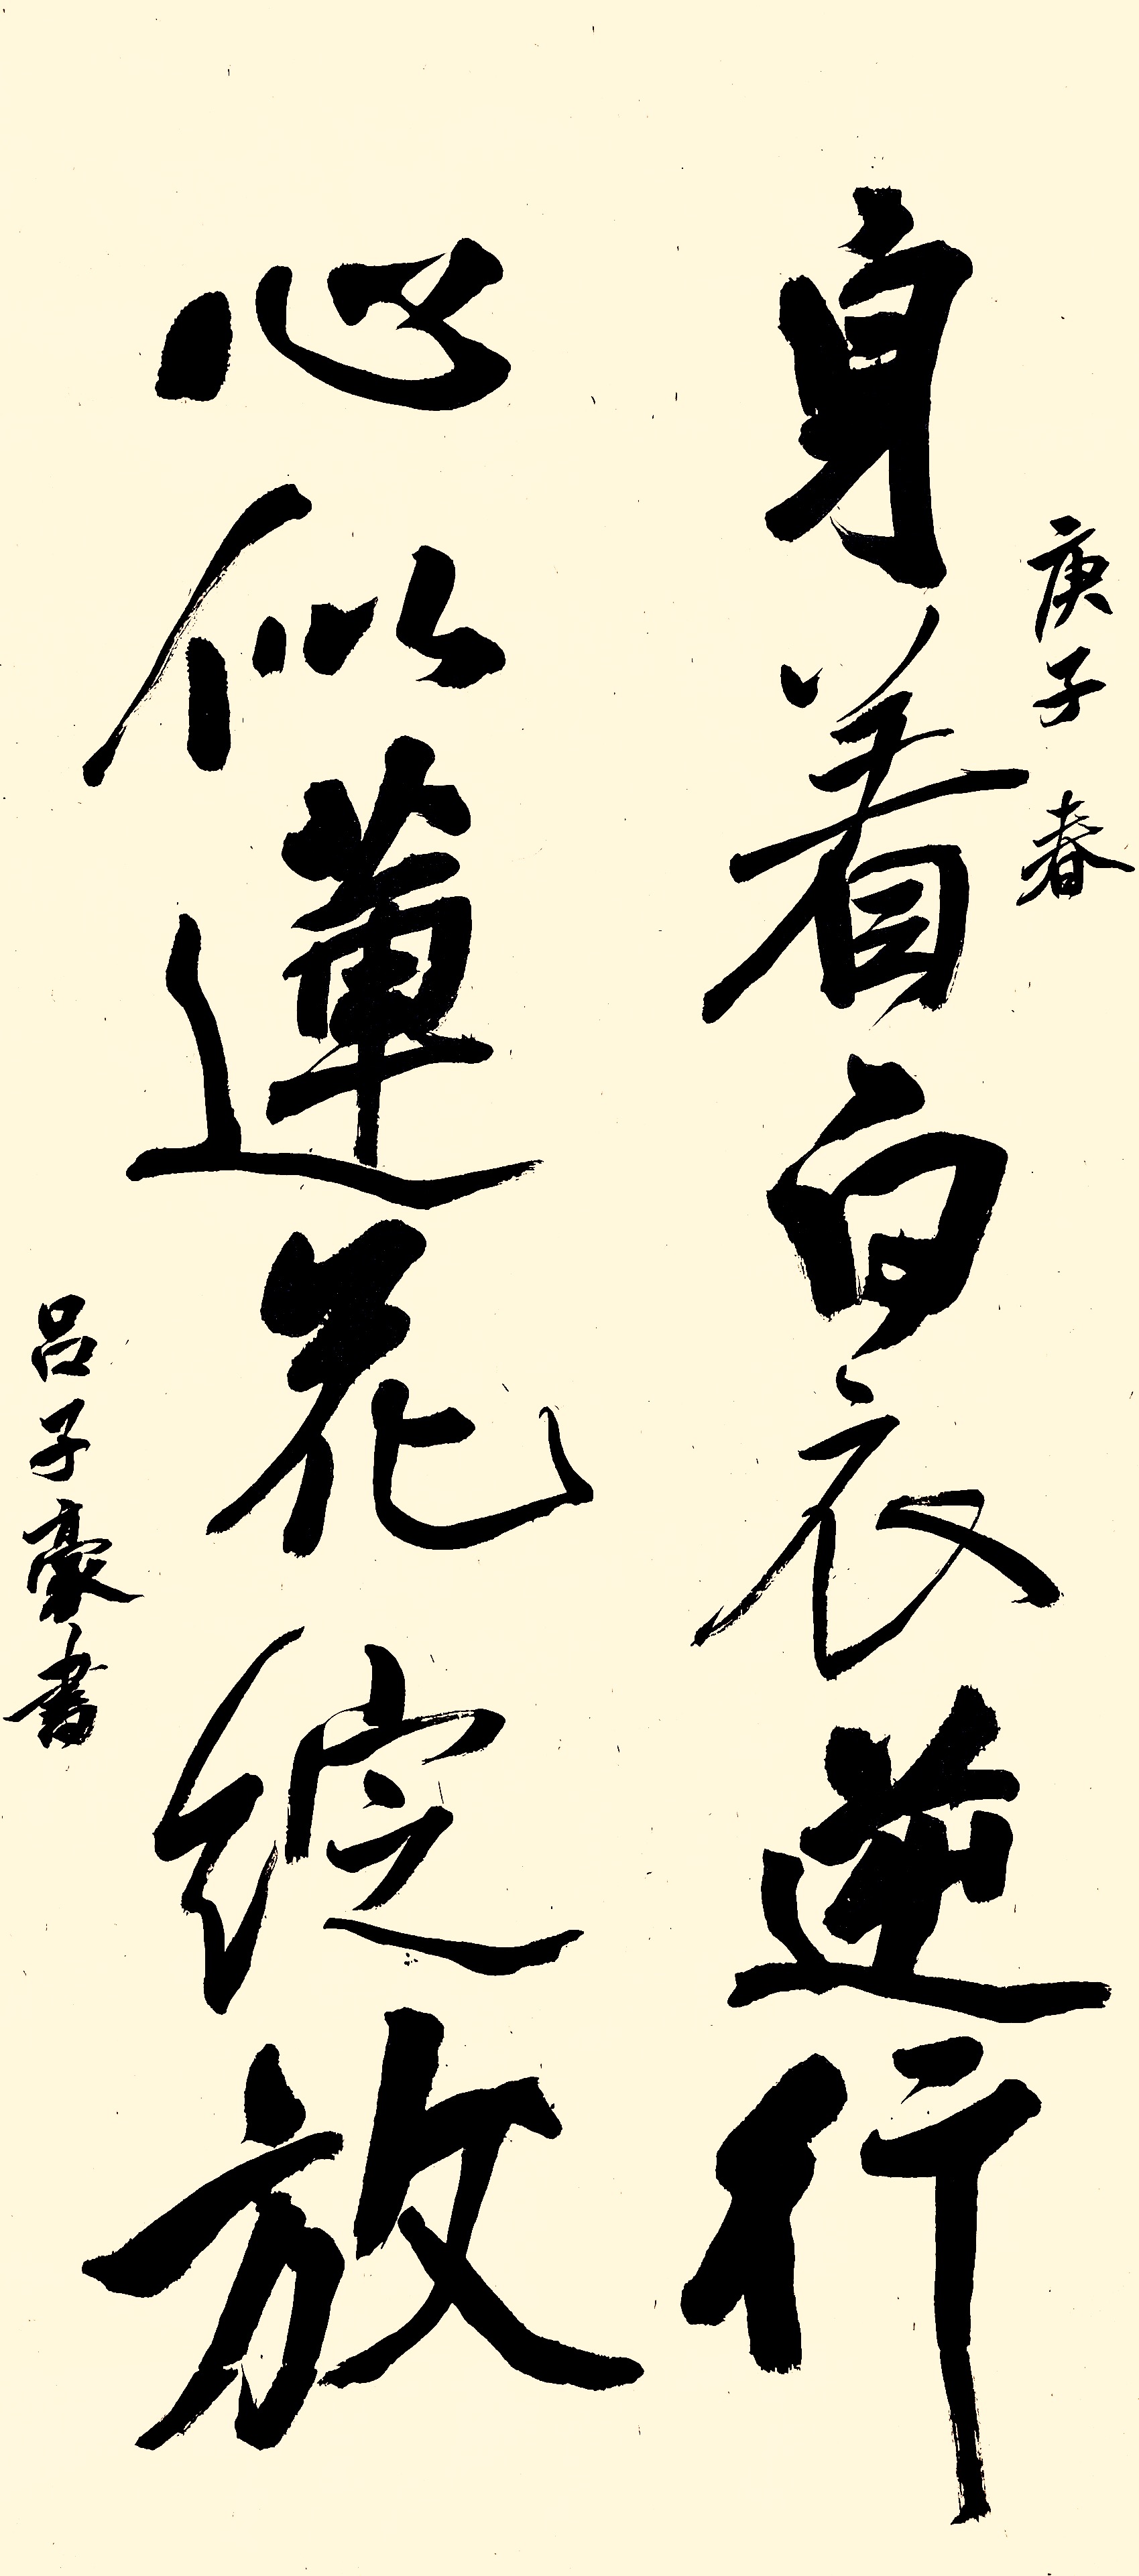 庚子春
身着白衣逆行
心似蓮花綻放
吕子豪書